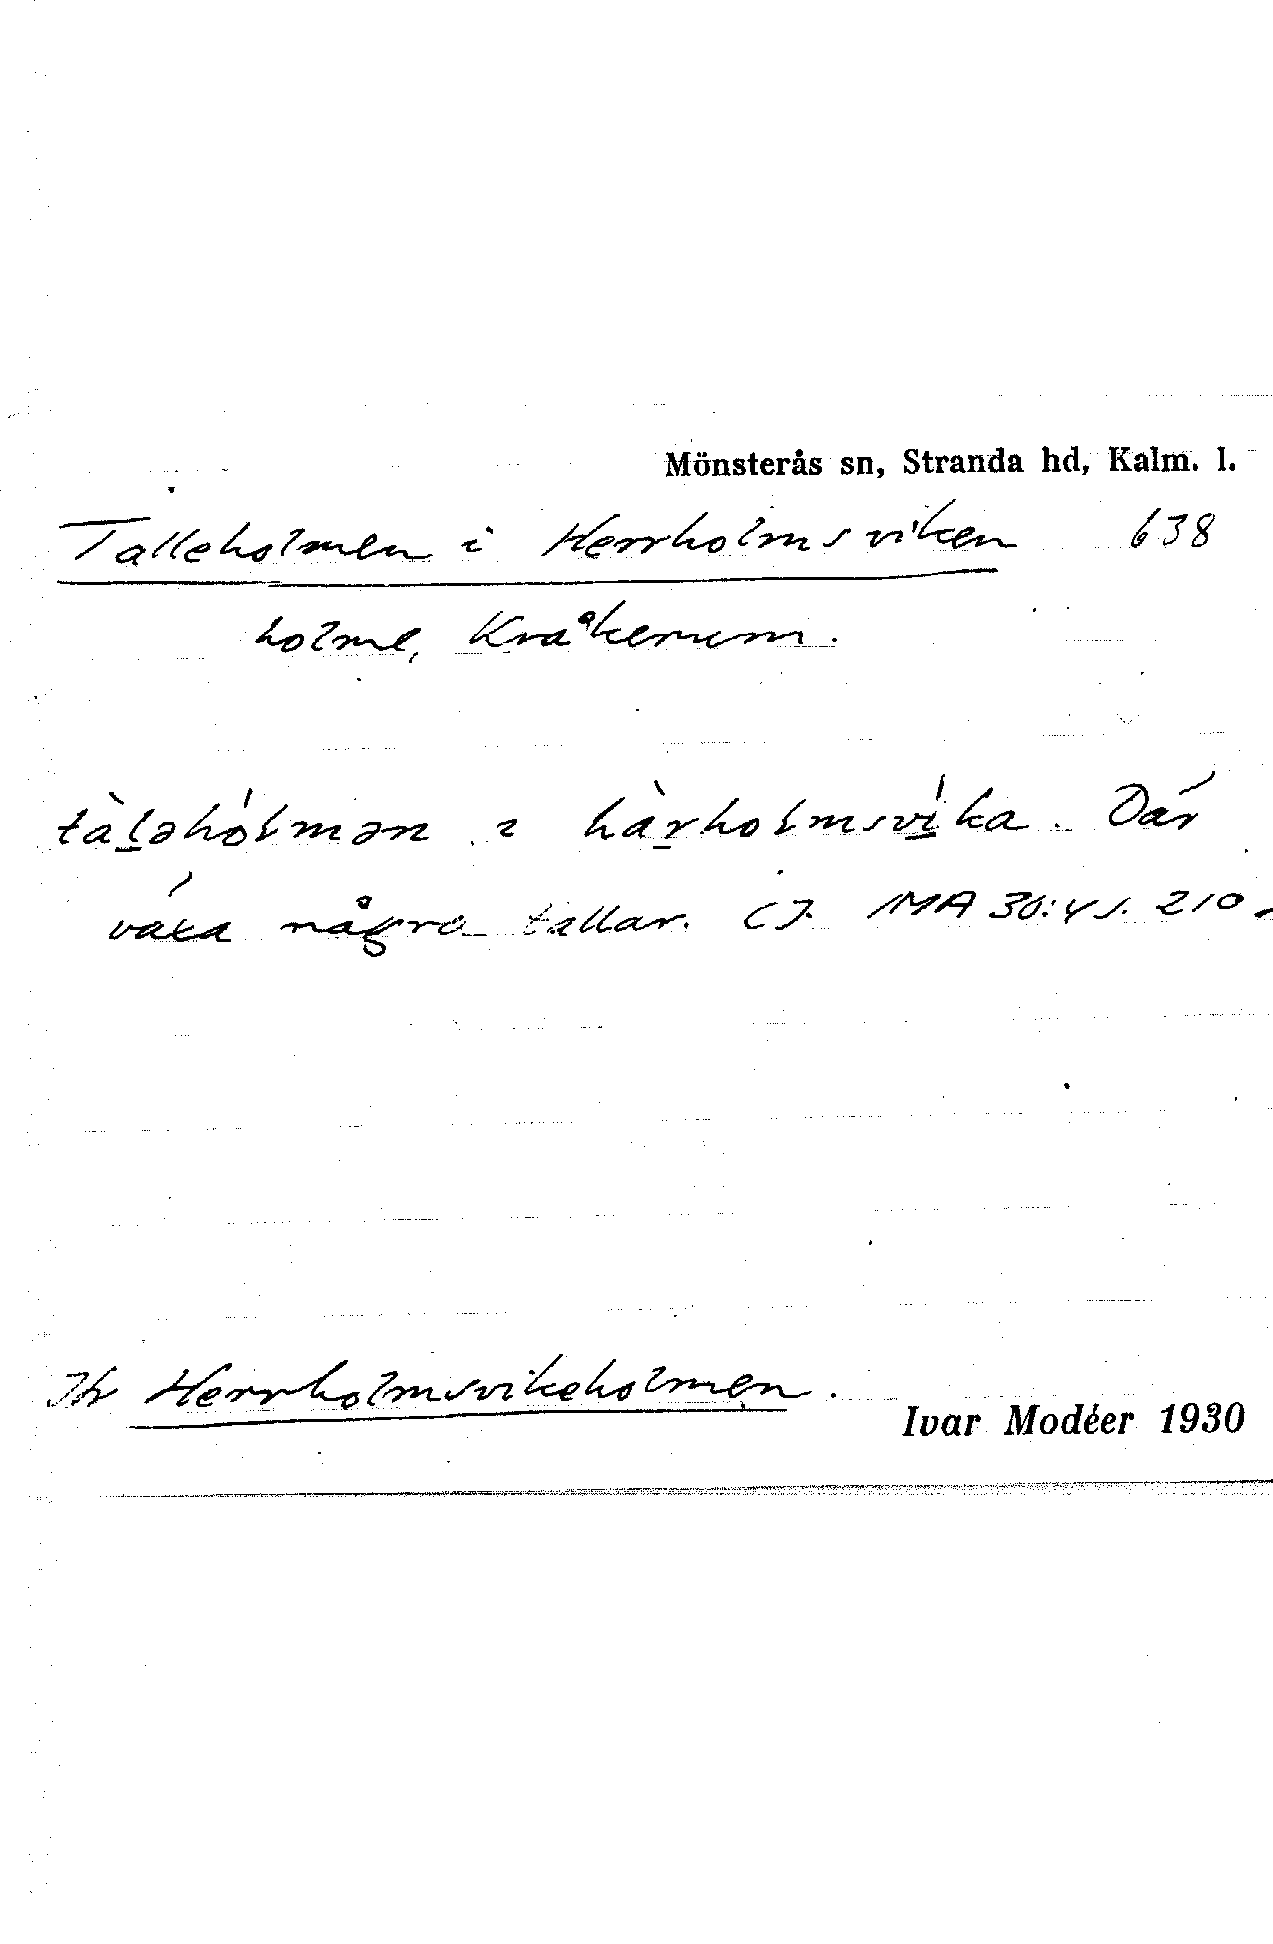 Mönsterås sn, Stranda hd, Kalm. l.
Talleholmen i Herrholmsviken 638
holme, Kråkerum.
tàl̲əhólmən ɩ hàr̲holmsví̲ka. Där
växa några tallar. CJ. IMA 30:4 s. 210.
Jfr Herrholmsvikeholmen.
Ivar Modéer 1930